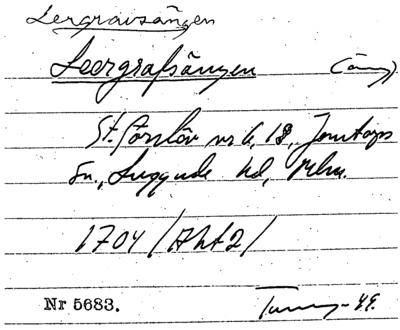 Lergravsängen
Leergrafsängen (äng)
St. Förslöv nr 6, 18, Jonstorps
sn., Luggude hd, Mlm.
1704 /Aht 2/
Nr 5683.